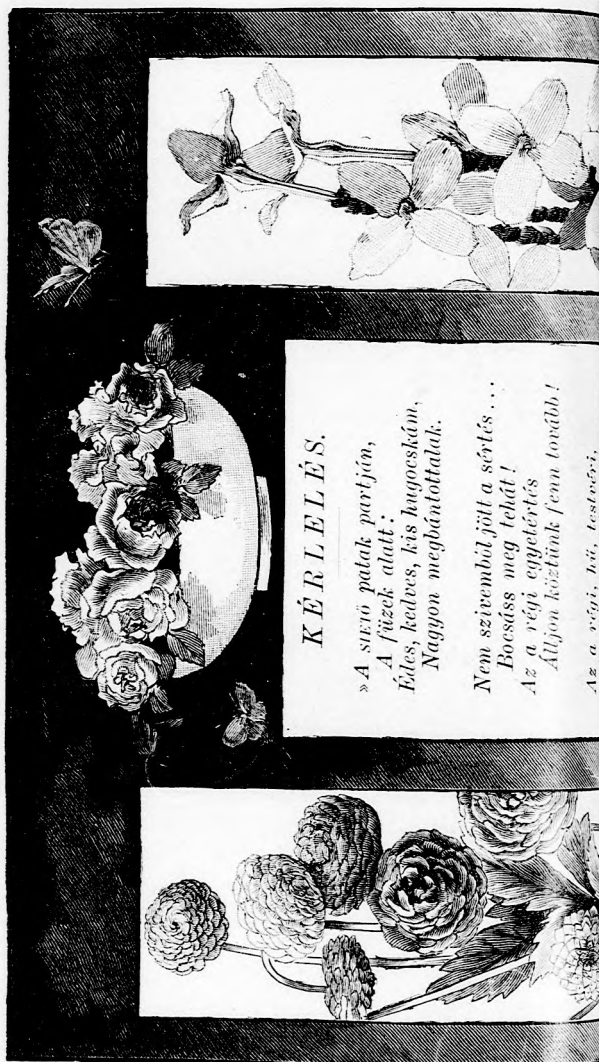 KÉRLELÉS.
»A siető patak partján,
A füzek alatt;
Édes, kedves, kis hugocskám,
Nagyon megbántottalak.
Nem szivemből jött a sértés...
Bocsáss meg tehát!
Az a régi egyetértés
Álljon köztünk fenn tovább!
Az a régi, hű, testvéri,